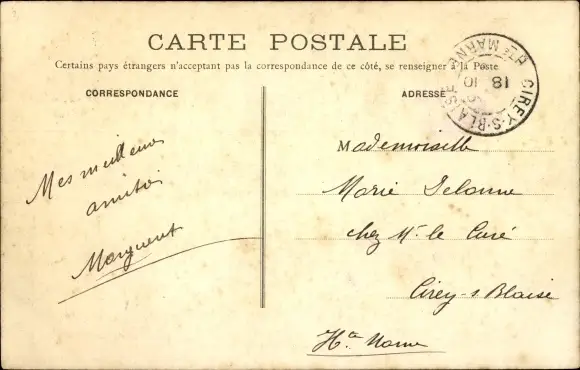 CARTE POSTALE
Certains pays étrangers n'acceptant pas la correspondance de ce côté, se renseigner à la Poste
CORRESPONDANCE
ADRESSE
CIREY-S-BLAISE
Hte MARNE
18
10
Mes meilleures
amitiés
Marguerit
Mademoiselle
Marie Delanne
chez Mr le Curé
Cirey-s Blaise
Hte Marne